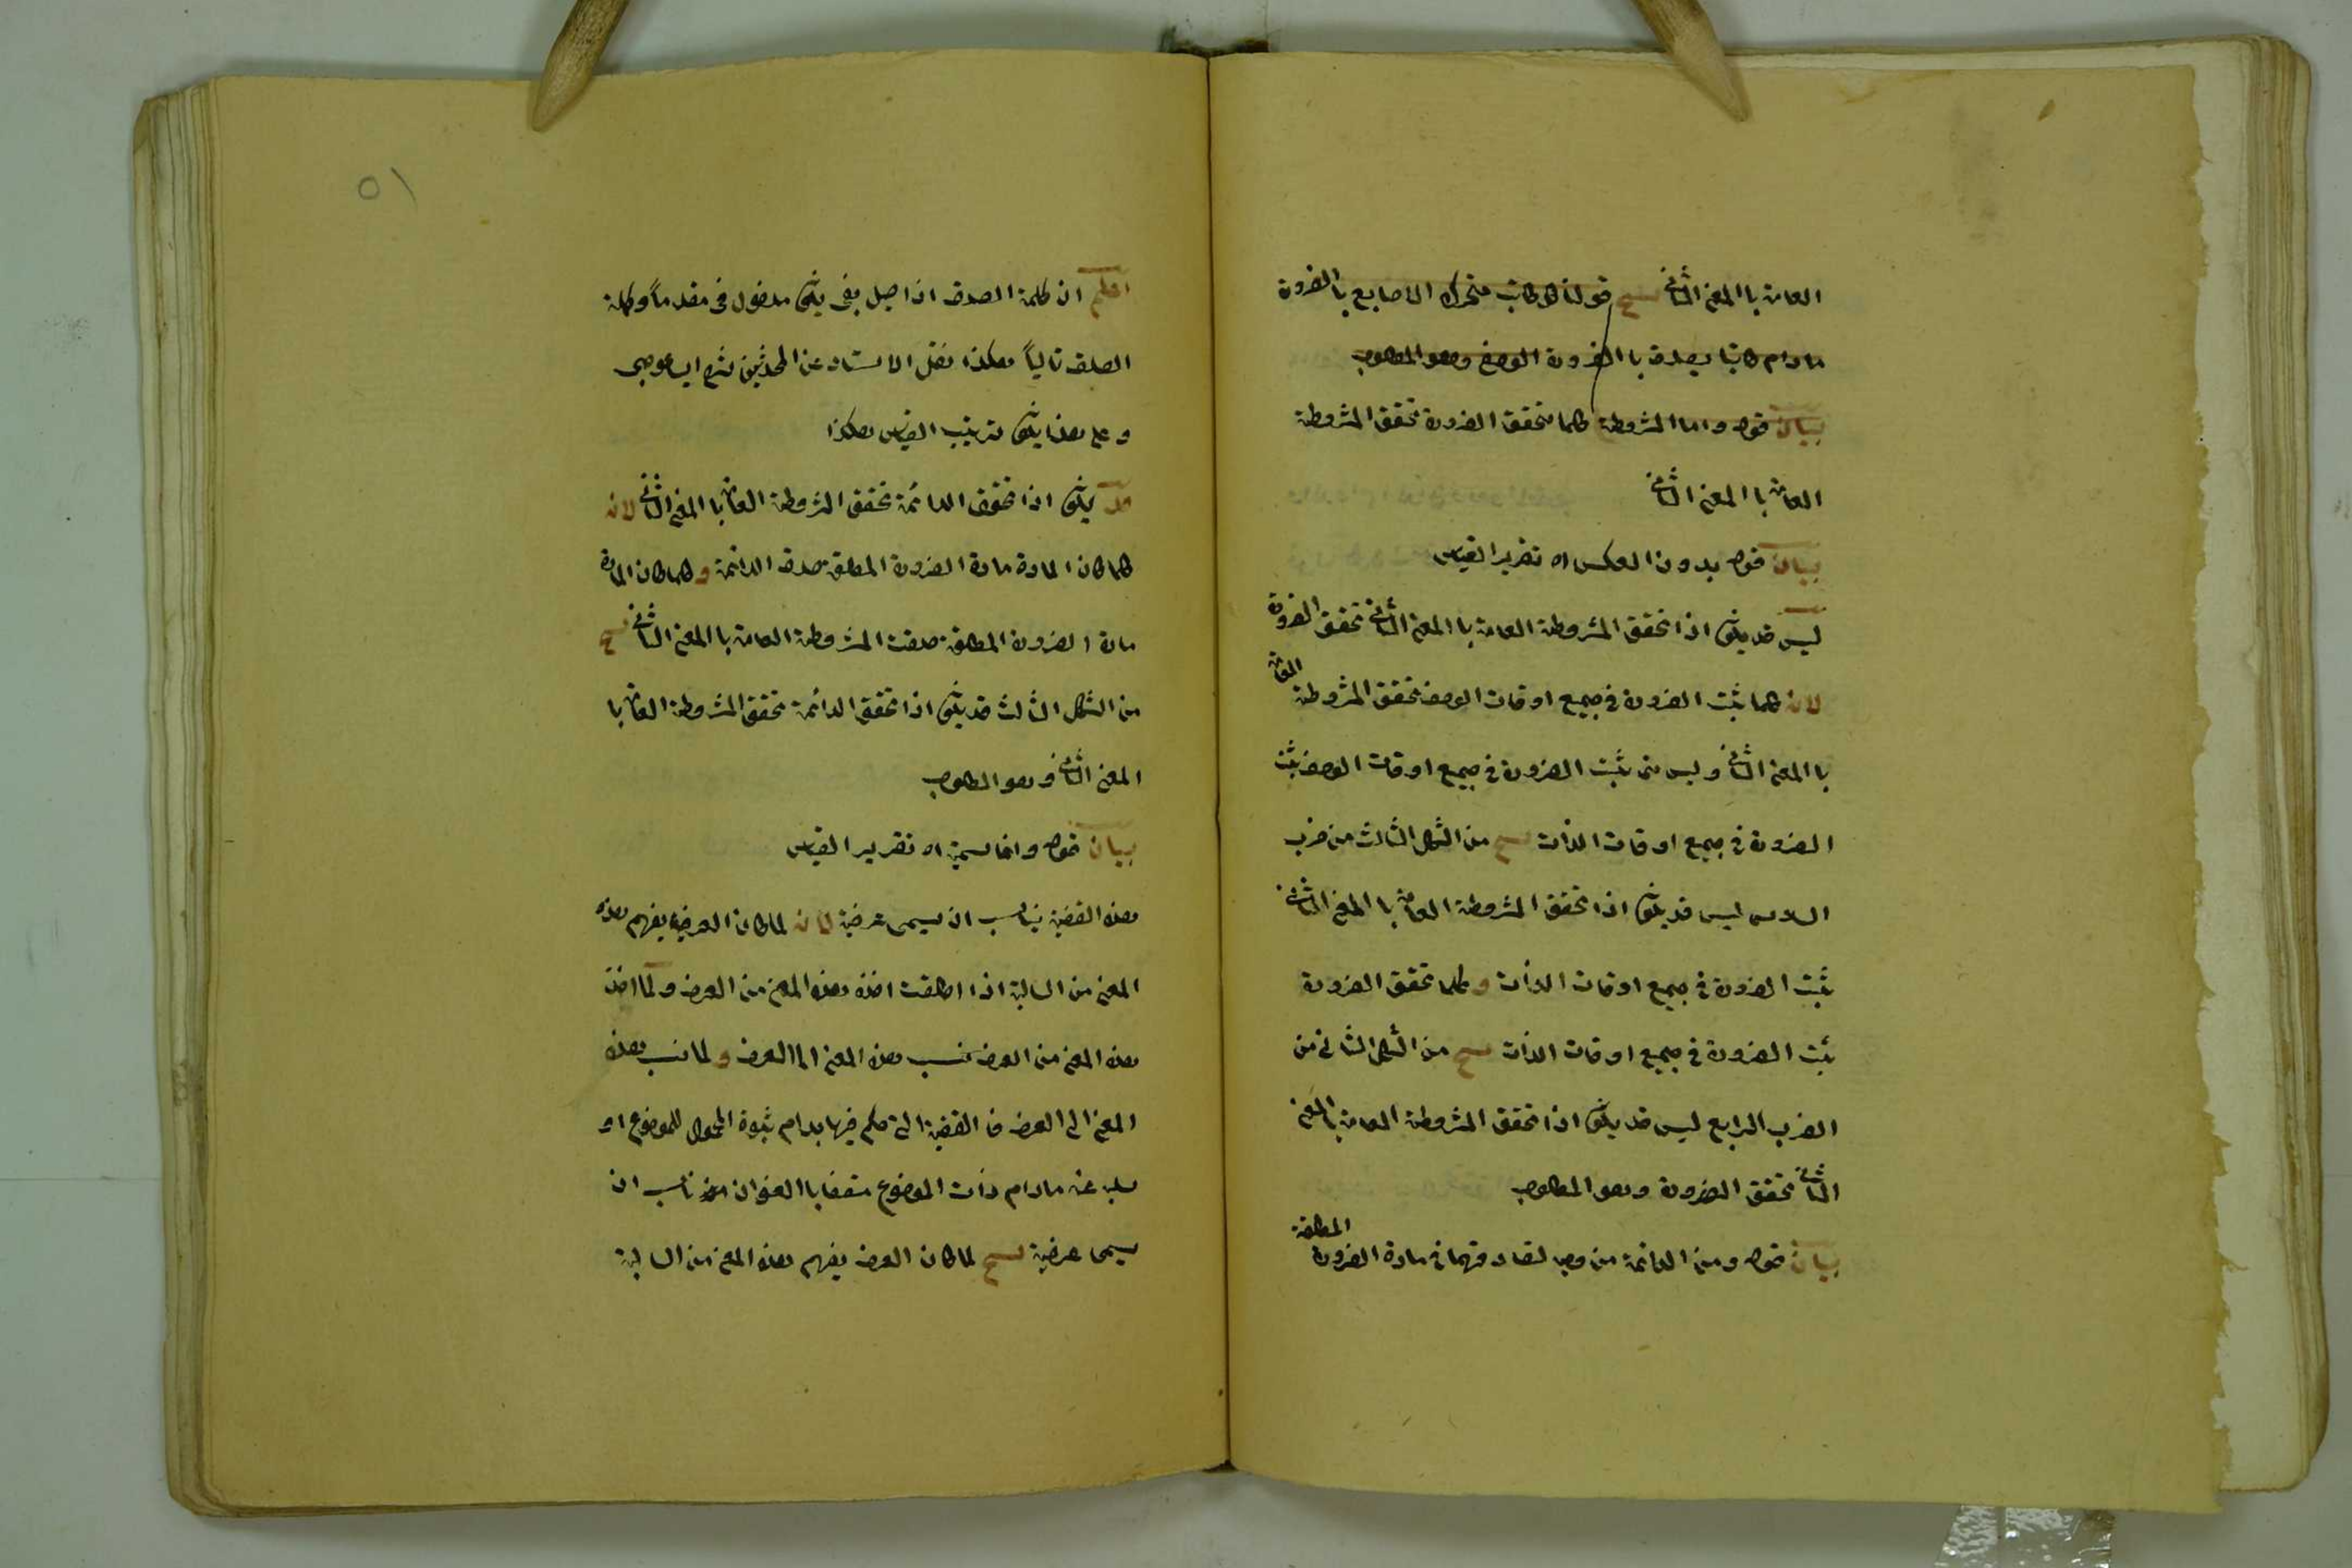 العامة باالمعنى الثانى قولنا كل كاتب متحرك الاصابع باالضرورة
مادام كاتبا يصدق باالضرورة الوصف وهو المطلوب
بيان قوله واما المشروطة كلما تحقق الضرورة تحقق المشروطة
العامة باالمعنى الثانى
بيان قوله بدون العكس اه تقرير القياس
ليس قد يكون اذا تحقق المشروطة العامة باالمعنى الثانى تحقق الضرورة
لانه كلما ثبت الضرورة فى جميع اوقات الوصف تحقق المشروطة العامة
باالمعنى الثانى وليس متى ثبت الضرورة فى جميع اوقات الوصف ثبت
الضرورة فى جميع اوقات الذات من الشكل الثالث من ضرب
السادس ليس قد يكون اذا تحقق المشروطة العامة باالمعنى الثانى
ثبت الضرورة فى جميع اوقات الذات و كلما تحقق الضرورة
ثبت الضرورة فى جميع اوقات الذات من الشكل الثانى من
الضرب الرابع ليس قد يكون اذا تحقق المشروطة العامة باالمعنى
الثانى تحقق الضرورة وهو المطلوب
بيان قوله ومن الدائمة من وجه لتصادقهما فى مادة الضرورة المطلقة
اعلم ان كلمة الصدق اذا يكون مدخول فى مقدماً وكلمة
الصدق تالياً هكذا نقل الاستاد عن
و على هذا يكون ترتيب القياس هكذا
قد يكون اذا تحقق الدائمة تحقق المشروطة العامة باالمعنى الثانى لانه
كلما كان المادة مادة الضرورة المطلقة صدق الدائمة و كلما كان المادة
مادة الضرورة المطلقة صدقت المشروطة العامة باالمعنى الثانى
من الشكل الثالث قد يكون اذا تحقق الدائمة تحقق المشروطة العامة با
المعنى الثانى وهو المطلوب
بيان قوله وانما سميت اه تقرير القياس
هذه القضية يناسب ان يسمى عرفية لانه لما كان العرف يفهم هذه
المعنى من السالبة اذا اطلقت اخذ هذه المعنى من العرف و لما اخذ
هذه المعنى من العرف نسب هذه المعنى الى العرف و لما نسب هذه
المعنى الى العرف فا القضية التى حكم فيها بدوام ثبوة المحمول للموضوع او
سلبه عنه مادام ذات الموضوع متصفا باالعنوان ناسب ان
يسمى عرفية لما كان العرف يفهم هذه المعنى من السالبة
٥١